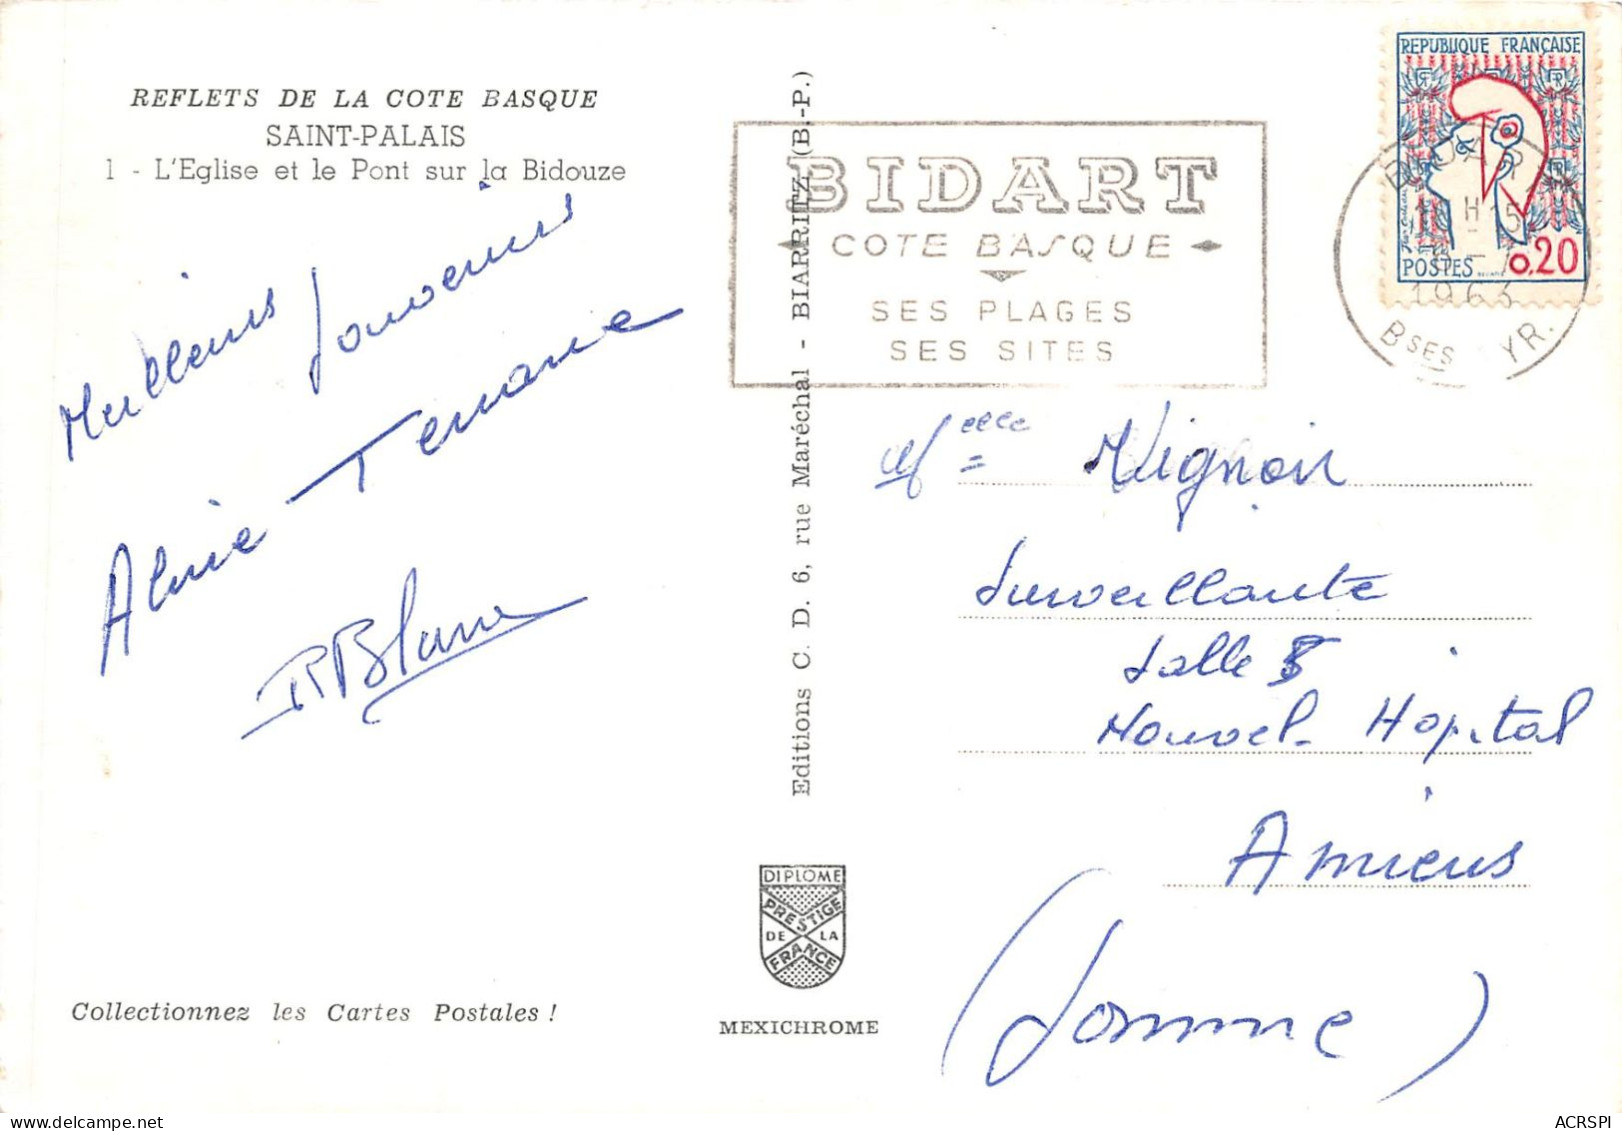 REFLETS DE LA COTE BASQUE
SAINT-PALAIS
1 - L'Eglise et le Pont sur la Bidouze
Meilleurs Souvenirs
Collectionnez les Cartes Postales !
Editions C. D. 6, rue Maréchal - BIARRITZ (B.-P.)
DIPLOME
PRESTIGE
DE LA
FRANCE
MEXICHROME
BIDART
COTE BASQUE
SES PLAGES
SES SITES
REPUBLIQUE FRANÇAISE
POSTES 0,20
1963
BSES YR.
Melle Mignon
Surveillante
Salle 5
Nouvel Hôpital
Amiens
(Somme)
delcampe.net
ACRSPI